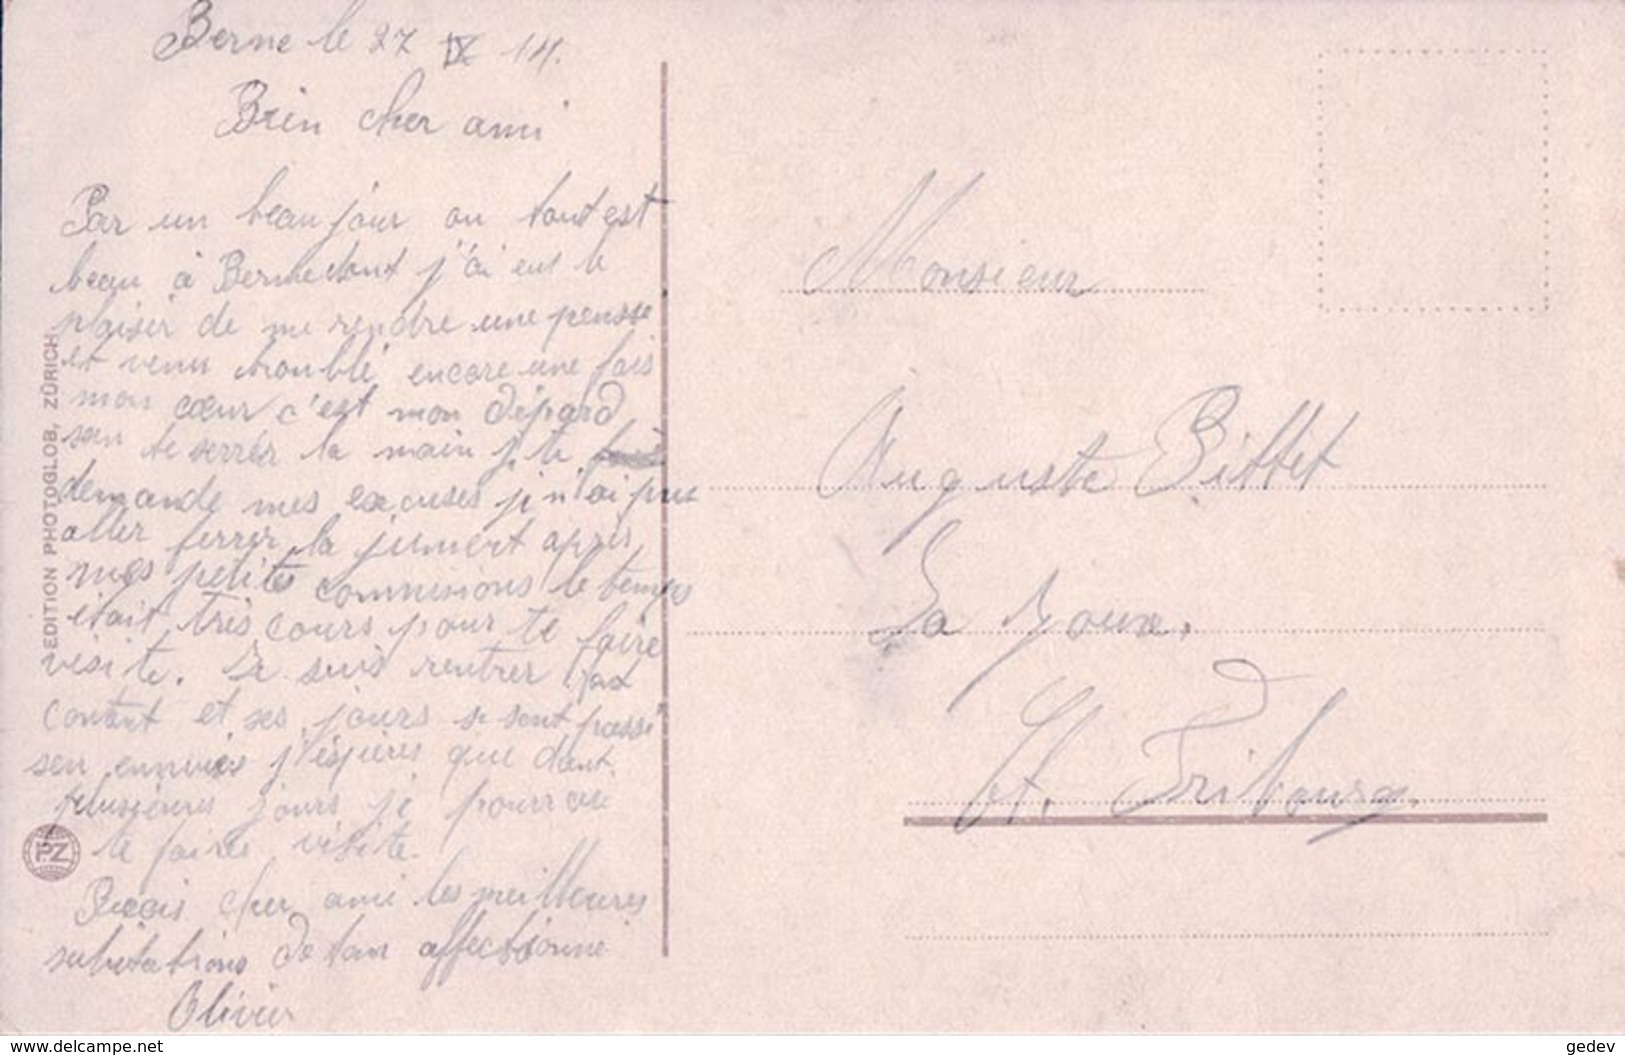 Berne le 27 IX 14.
Bien cher ami
Par un beau jour ou tout est
beau à Berne dont j'ai eut le
plaisir de me rendre une pensée
et venu troublé encore une fois
mon cœur c'est mon dépard
sen te serrér la main je te
demande mes excuses j n'ai pus
aller ferrer la jument après
mes petites commisions le temps
était très cours pour te faire
visite. Je suis rentrer
contant et ses jours se sont passé
sen ennuies j'éspères que dant
plusieurs jours je pourrai
te faire visite.
Reçois cher ami les meilleures
salutations de ton affectionné
Olivier
EDITION PHOTOGLOB, ZÜRICH
PZ
Monsieur
Auguste Pittet
La Joux.
Ct. Fribourg.
www.delcampe.net
gedev